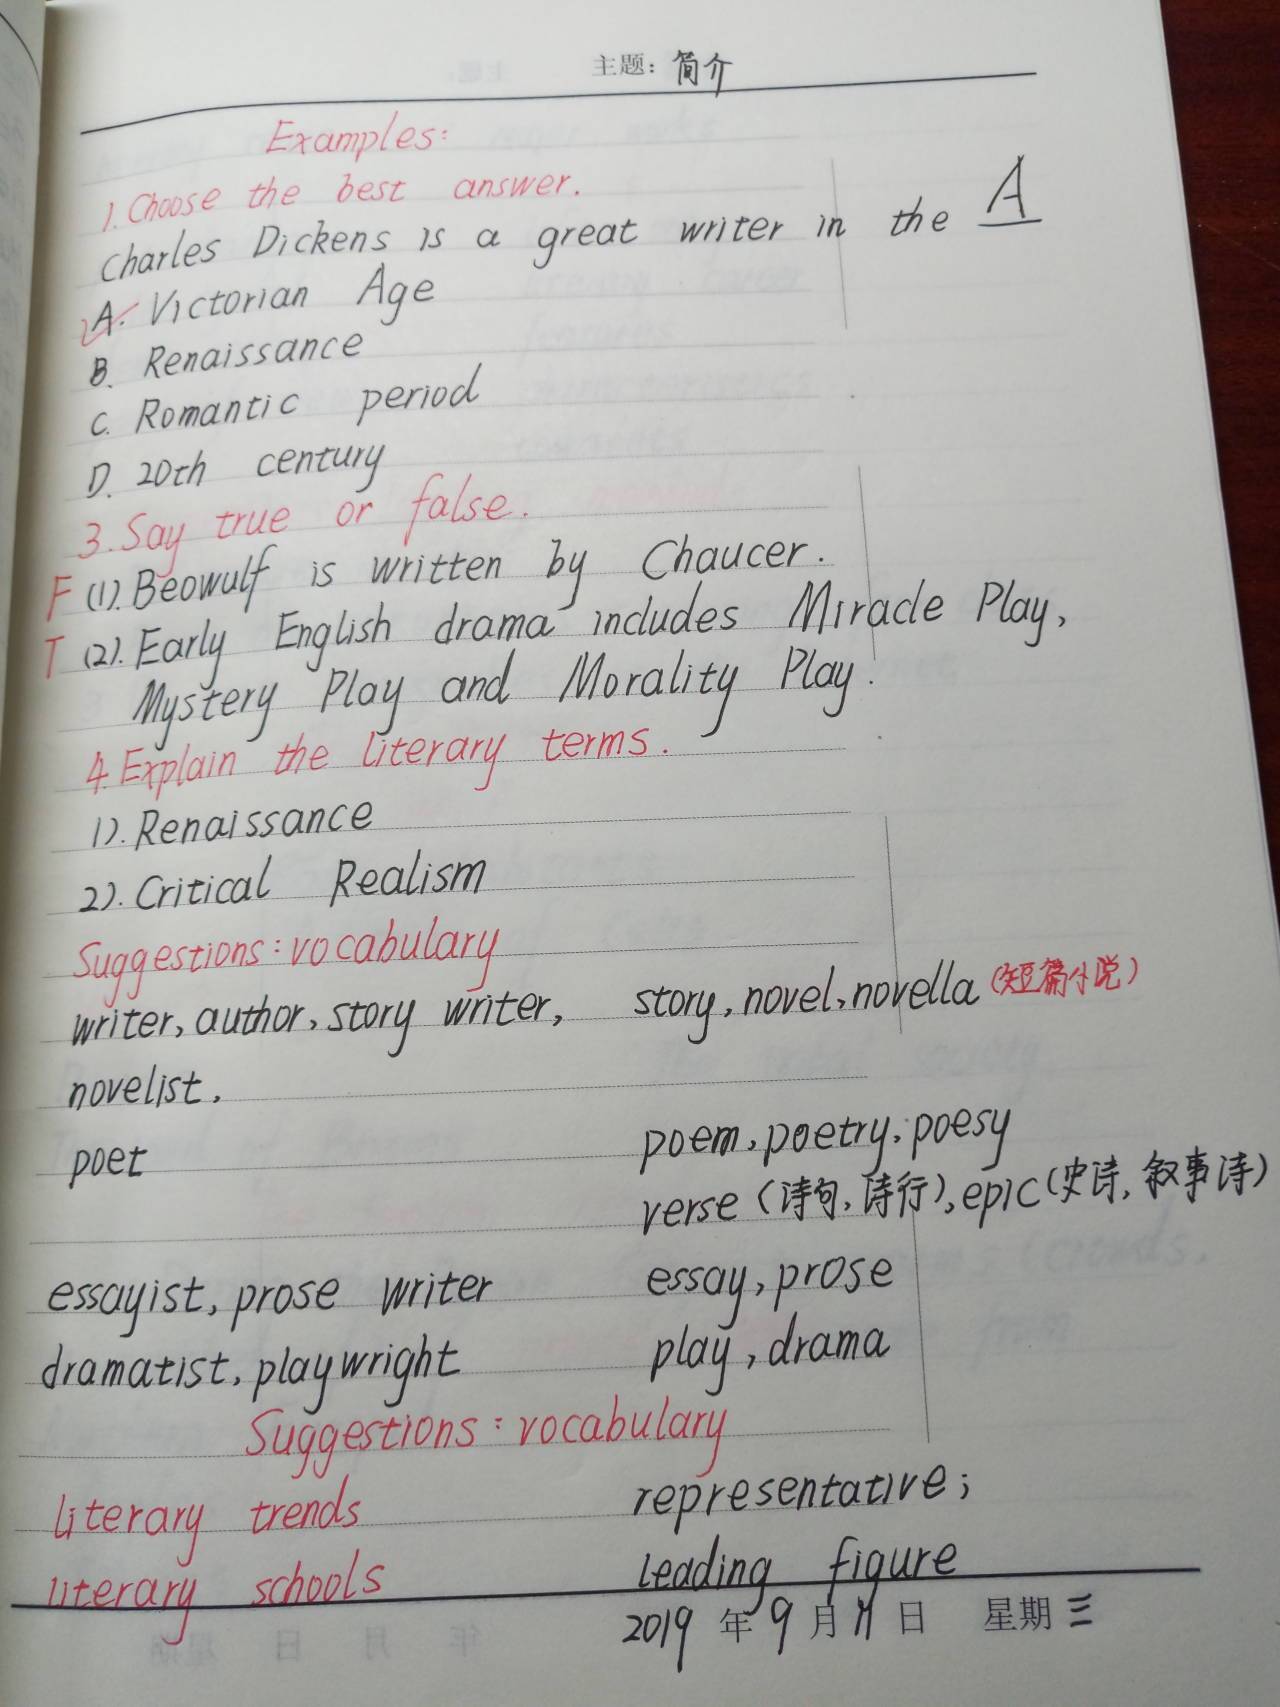 主题: 简介
Examples:
1. Choose the best answer.
Charles Dickens is a great writer in the A
A. Victorian Age
B. Renaissance
C. Romantic period
D. 20th century
3. Say true or false.
F (1). Beowulf is written by Chaucer.
T (2). Early English drama includes Miracle Play,
Mystery Play and Morality Play.
4. Explain the literary terms.
1). Renaissance
2). Critical Realism
Suggestions: vocabulary
writer, author, story writer, story, novel, novella (短篇小说)
novelist,
poet poem, poetry, poesy
verse (诗句, 诗行), epic (史诗, 叙事诗)
essayist, prose writer essay, prose
dramatist, playwright play, drama
Suggestions: vocabulary
literary trends representative;
literary schools leading figure
2019 年 9 月 11 日 星期三